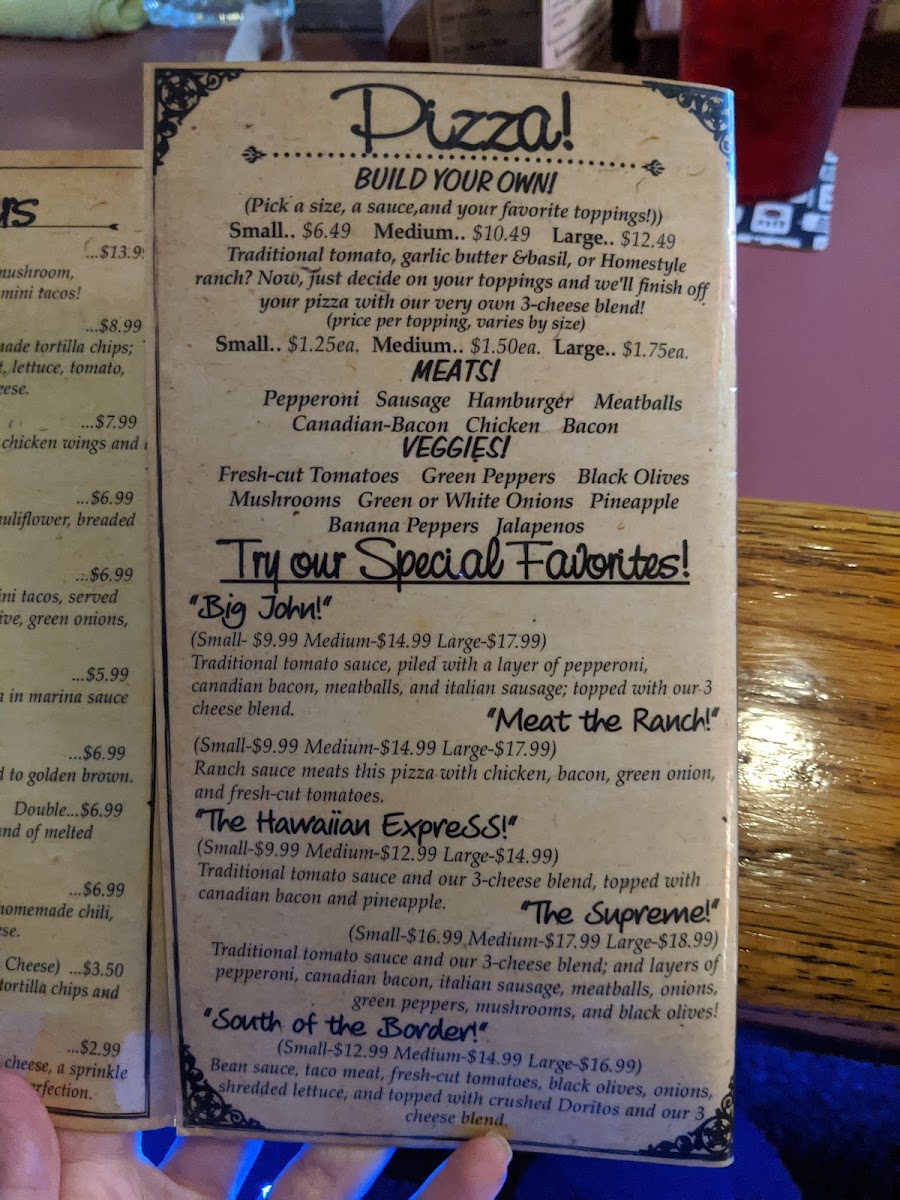 us
...$13.9
mushroom,
mini tacos!
...$8.99
made tortilla chips;
t, lettuce, tomato,
eese.
...$7.99
chicken wings and
...$6.99
auliflower, breaded
...$6.99
ini tacos, served
ive, green onions,
...$5.99
a in marina sauce
...$6.99
d to golden brown.
Double...$6.99
and of melted
...$6.99
homemade chili,
ese.
Cheese) ...$3.50
tortilla chips and
...$2.99
cheese, a sprinkle
erfection.
Pizza!
BUILD YOUR OWN!
(Pick a size, a sauce,and your favorite toppings!))
Small.. $6.49 Medium.. $10.49 Large.. $12.49
Traditional tomato, garlic butter &basil, or Homestyle
ranch? Now, just decide on your toppings and we'll finish off
your pizza with our very own 3-cheese blend!
(price per topping, varies by size)
Small.. $1.25ea. Medium.. $1.50ea. Large.. $1.75ea.
MEATS!
Pepperoni Sausage Hamburger Meatballs
Canadian-Bacon Chicken Bacon
VEGGIES!
Fresh-cut Tomatoes Green Peppers Black Olives
Mushrooms Green or White Onions Pineapple
Banana Peppers Jalapenos
Try our Special Favorites!
"Big John!"
(Small- $9.99 Medium-$14.99 Large-$17.99)
Traditional tomato sauce, piled with a layer of pepperoni,
canadian bacon, meatballs, and italian sausage; topped with our 3
cheese blend.
"Meat the Ranch!"
(Small-$9.99 Medium-$14.99 Large-$17.99)
Ranch sauce meats this pizza with chicken, bacon, green onion,
and fresh-cut tomatoes.
"The Hawaiian ExpreSS!"
(Small-$9.99 Medium-$12.99 Large-$14.99)
Traditional tomato sauce and our 3-cheese blend, topped with
canadian bacon and pineapple.
"The Supreme!"
(Small-$16.99 Medium-$17.99 Large-$18.99)
Traditional tomato sauce and our 3-cheese blend; and layers of
pepperoni, canadian bacon, italian sausage, meatballs, onions,
green peppers, mushrooms, and black olives!
"South of the Border!"
(Small-$12.99 Medium-$14.99 Large-$16.99)
Bean sauce, taco meat, fresh-cut tomatoes, black olives, onions,
shredded lettuce, and topped with crushed Doritos and our 3
cheese blend.